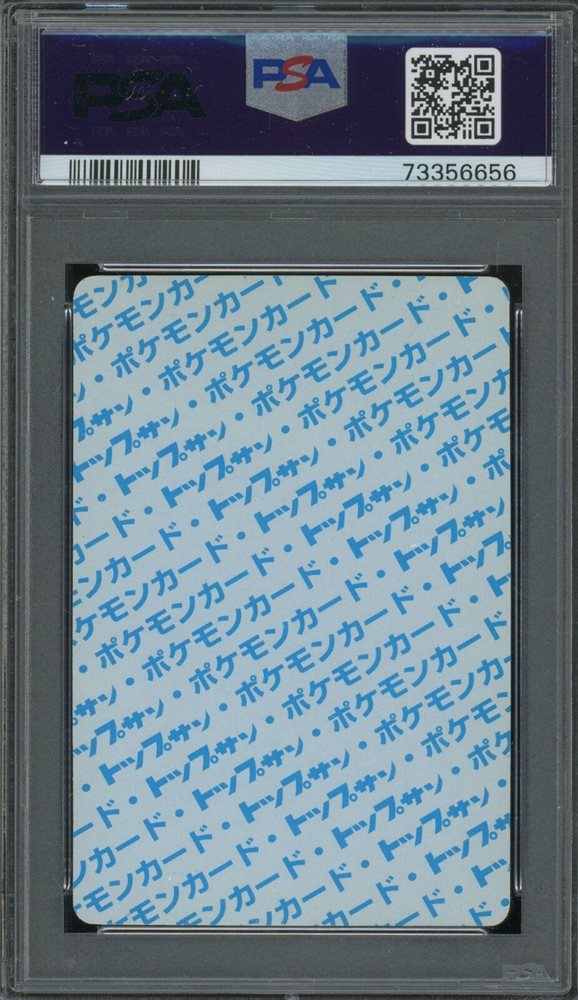 PSA
PSA
73356656
モンカ
ポケモンカー
・ポケモンカード
・ポケモンカード・
プサン・ポケモンカード・
トップサン・ポケモンカード
・トップサン・ポケモンカ
ード・トップサン・ポケモ
ンカード・トップサン・ポ
ケモンカード・トップサン
・ポケモンカード・トップ
・ポケモンカード・
サン・ポケモンカード
ップサン・ポケモンカ
・トップサン・ポケモン
ード・トップサン・ポケ
ンカード・トップサン・
モンカード・トップサン
ケモンカード・トップ
ンカード・
PSA